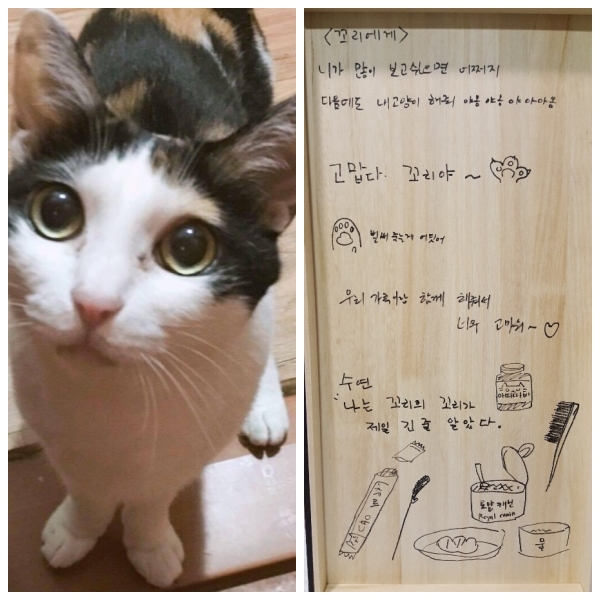 <꼬리에게>
니가 많이 보고싶으면 어쩌지
다음에도 내고양이 해줘 야옹 야옹 야 아아옹
고맙다. 꼬리야 ~
벌써 죽는게 어딨어
우리 가족이랑 함께 해줘서
너무 고마워~ ♡
수연
: 나는 꼬리의 꼬리가
제일 긴 줄 알았다.
로얄캐닌
Royal canin
물